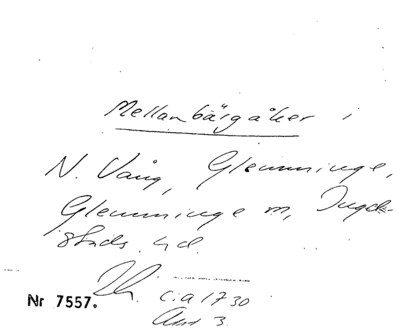 Mellanbärgåker i
N. Vång, Glemminge,
Glemminge m, Ingel-
stads hd.
c:a 1730
Nr 7557.